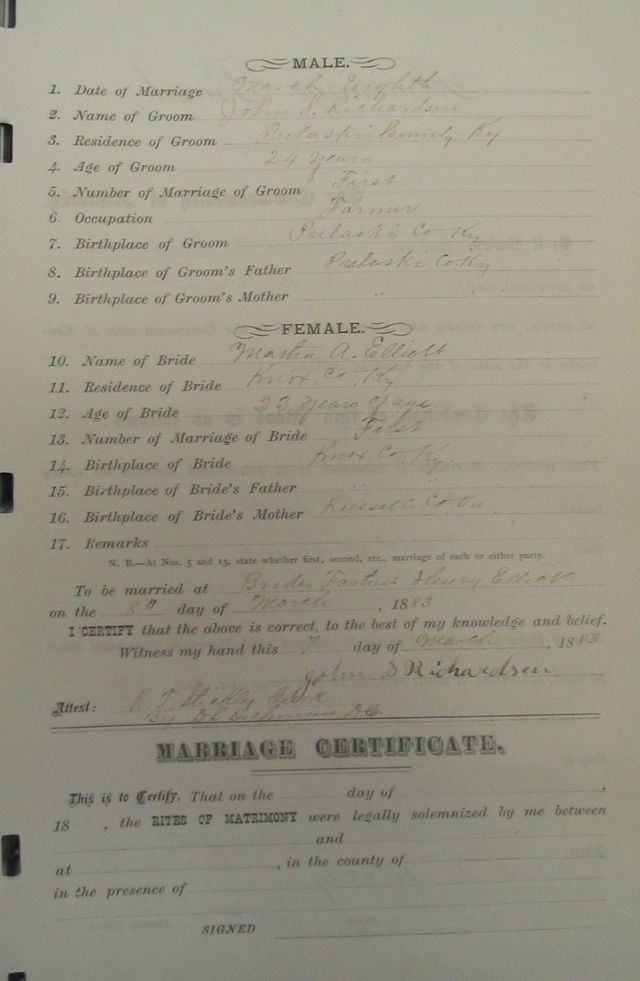 MALE.
1. Date of Marriage March Eighth
2. Name of Groom John S. Richardson
3. Residence of Groom Pulaski County Ky
4. Age of Groom 24 years
5. Number of Marriage of Groom First
6. Occupation Farmer
7. Birthplace of Groom Pulaski Co Ky
8. Birthplace of Groom's Father Pulaski Co Ky
9. Birthplace of Groom's Mother " "
FEMALE.
10. Name of Bride Martha A. Elliott
11. Residence of Bride Knox Co Ky
12. Age of Bride 23 years of age
13. Number of Marriage of Bride First
14. Birthplace of Bride Knox Co Ky.
15. Birthplace of Bride's Father " "
16. Birthplace of Bride's Mother Russell Co Va
17. Remarks
N. B.—At Nos. 5 and 13, state whether first, second, etc., marriage of each or either party.
To be married at Brides Henry Elliott
on the 8" day of March, 1883
I CERTIFY that the above is correct, to the best of my knowledge and belief.
Witness my hand this 7 day of March, 1883.
John S Richardson
Attest:
By D.C.
MARRIAGE CERTIFICATE.
This is to Certify, That on the day of ,
18 , the RITES OF MATRIMONY were legally solemnized by me between
and
at , in the county of
in the presence of
SIGNED